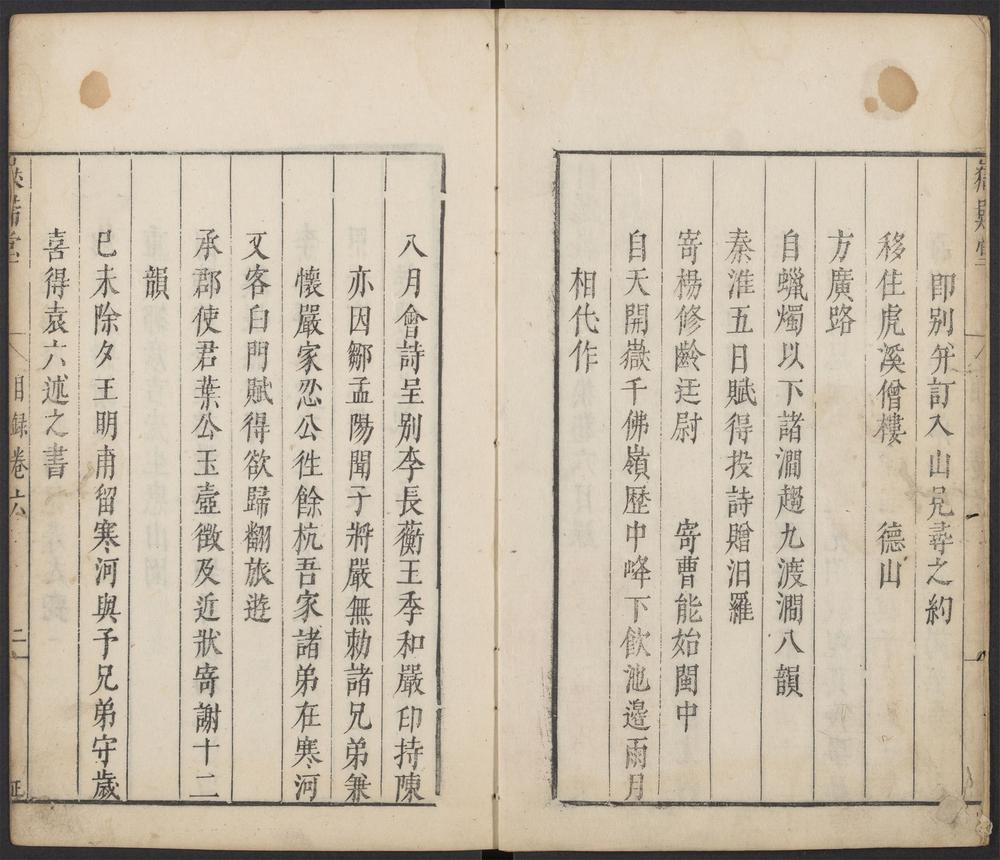 即别并訂入山見尋之約
移住虎溪僧樓　德山
方廣路
自蠟燭以下諸澗趨九渡澗八韻
秦淮五日賦得投詩贈汨羅
寄楊修齡廷尉　寄曹能始閩中
自天開嶽千佛嶺歴中峰下飲池邊雨月
相代作
八月會詩呈别李長蘅王季和嚴印持陳
亦因鄒孟陽聞子將嚴無勑諸兄弟兼
懷嚴家忍公徃餘杭吾家諸弟在寒河
又客白門賦得欲歸翻旅遊
承郡使君葉公玉壺徴及近狀寄謝十二
韻
巳未除夕王明甫留寒河與予兄弟守歲
喜得袁六述之書
目録卷六
二